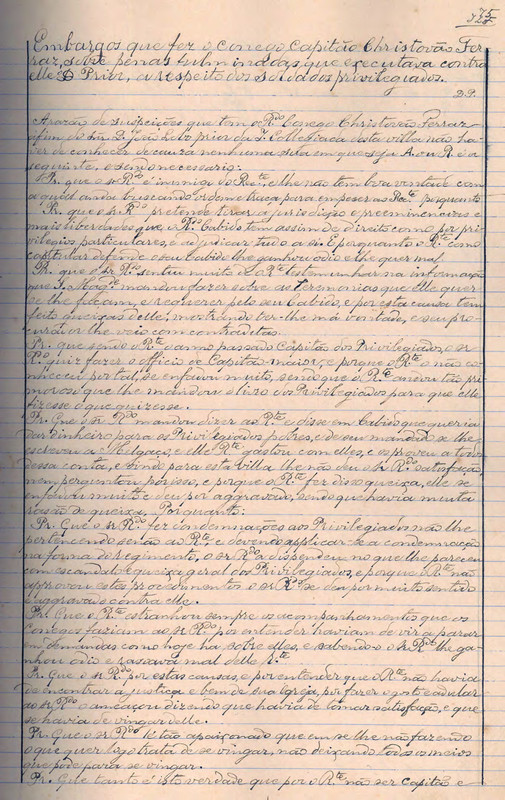 375
Embargos que fez o conego capitão Christovão Fer-
raz, sobre penas fulminadas que executava contra
elle D. Prior, a respeito dos soldados privilegiados.
D.P.
A razão de suspeições que tem o Rdo Conego Christovão Ferraz
afim do Snr. D. João Lobo prior da I. Collegiada desta villa não ha-
ver de conhecer de causa nenhuma sua em que seja A. ou R. é a
seguinte, e sendo necessario:
Pr. que o sr Rdo é inimigo do Rte, e lhe não tem boa vontade com
a qual anda buscando ordem e traça para empeser ao Rte porquanto
Pr. que o sr Rdo pretende tirar a jurisdição e preeminencias e
mais liberdades que o Rdo Cabido tem assim de direito como por pri-
vilegios particulares, e adjudicar tudo a si. E porquanto o Rte como
capitular defende o seu Cabido lhe ganhou odio e lhe quer mal.
Pr. que o sr Rdo sentiu muito o Rte testemunhar na informação
que S. Magde mandou fazer sobre as Ceremonias que elle quer
se lhe façam, e requerer pelo seu Cabido, e por esta causa tem
feito queixas delle, mostrando ter-lhe má vontade, e seu pro-
curador lhe veio com contradictas.
Pr. que sendo o Rte o anno passado Capitão dos Privilegiados, o sr
Rdo quiz fazer o officio de Capitão-maior, e porque o Rte o não co-
nheceu por tal, se enfadou muito, sendo que o Rte andou tão pri-
moroso que lhe mandou o livro dos Privilegiados para que elle
fizesse o que quizesse.
Pr. Que o sr Rdo mandou dizer ao Rte e disse em Cabido que queria
dar dinheiro para os Privilegiados pobres, e de seu mandado se lhe
escreveu a Melgaço, e elle Rte gastou com elles, e os proveu a todos
dessa conta, e vindo para esta Villa lhe não deu o sr Rdo satisfação,
nem perguntou por isso, e porque o Rte fez disso queixa, elle se
enfadou muito e deu por aggravado, sendo que havia muita
rasão de queixa. Porquanto:
Pr. Que o sr Rdo fez condemnações aos Privilegiados não lhe
pertencendo senão ao Rte e devendo applicar-se a condemnação
na forma do regimento, o sr Rdo a dispendeu no que lhe pareceu
com escandalo e queixa geral dos Privilegiados, e porque o Rte não
approvou estes procedimentos o sr Rdo se deu por muito sentido
e aggravado contra elle.
Pr. Que o Rte estranhou sempre os acompanhamentos que os
Conegos faziam ao sr Rdo por entender haviam de vir a parar
em demandas como hoje ha sobre elles, e sabendo-o o sr Rdo lhe ga-
nhou odio e passava mal delle Rte
Pr. Que o sr Rdo por estas causas, e por entender que o Rte não havia
de encontrar a justiça e bem de sua Igreja, por fazer o gosto e adular
ao sr Rdo o ameaçou dizendo que havia de tomar satisfação, e que
se havia de vingar delle.
Pr. Que o sr Rdo é tão apaixonado que em se lhe não fazendo
o que quer logo trata de se vingar, não deixando todos os meios
que póde para se vingar.
Pr. Que tanto é isto verdade que por o Rte não ser Capitão e